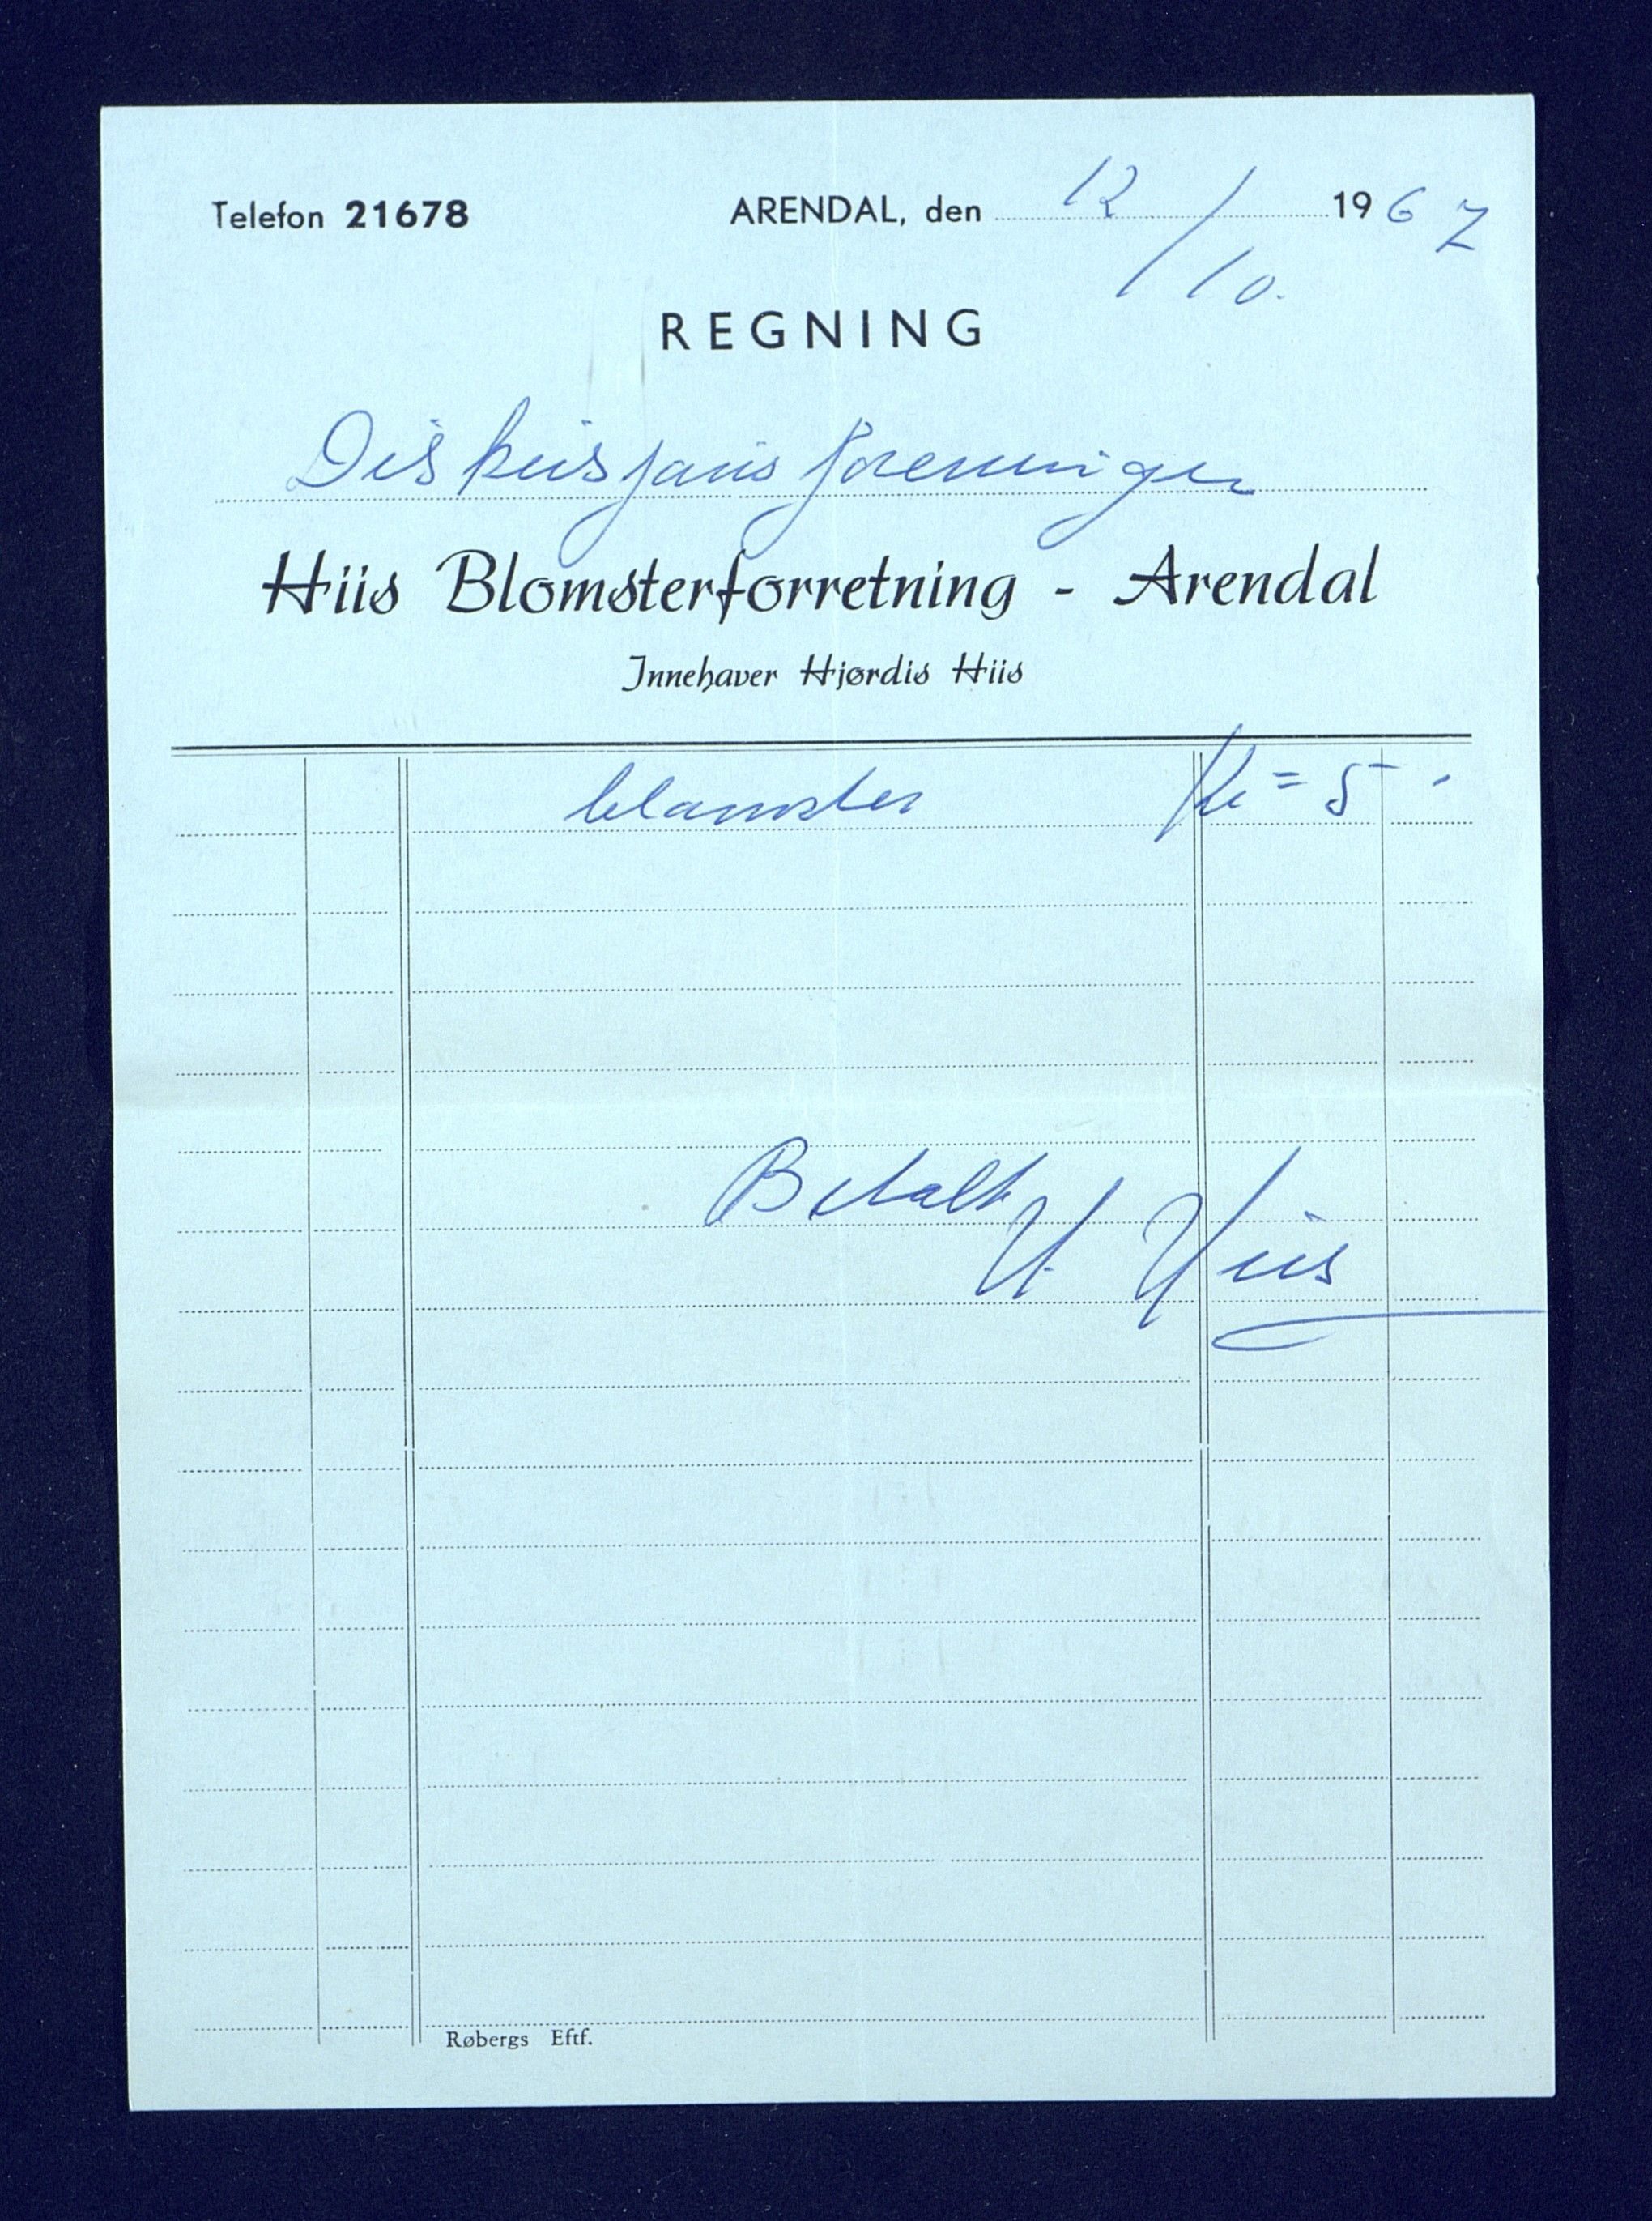 Telefon 21678 ARENDAL, den 12/10. 1967
REGNING
Diskusjons foreningen
Hiis Blomsterforretning - Arendal
Innehaver Hjørdis Hiis
blomster kr = 5 -
Betalt
H. Hiis
Røbergs Eftf.